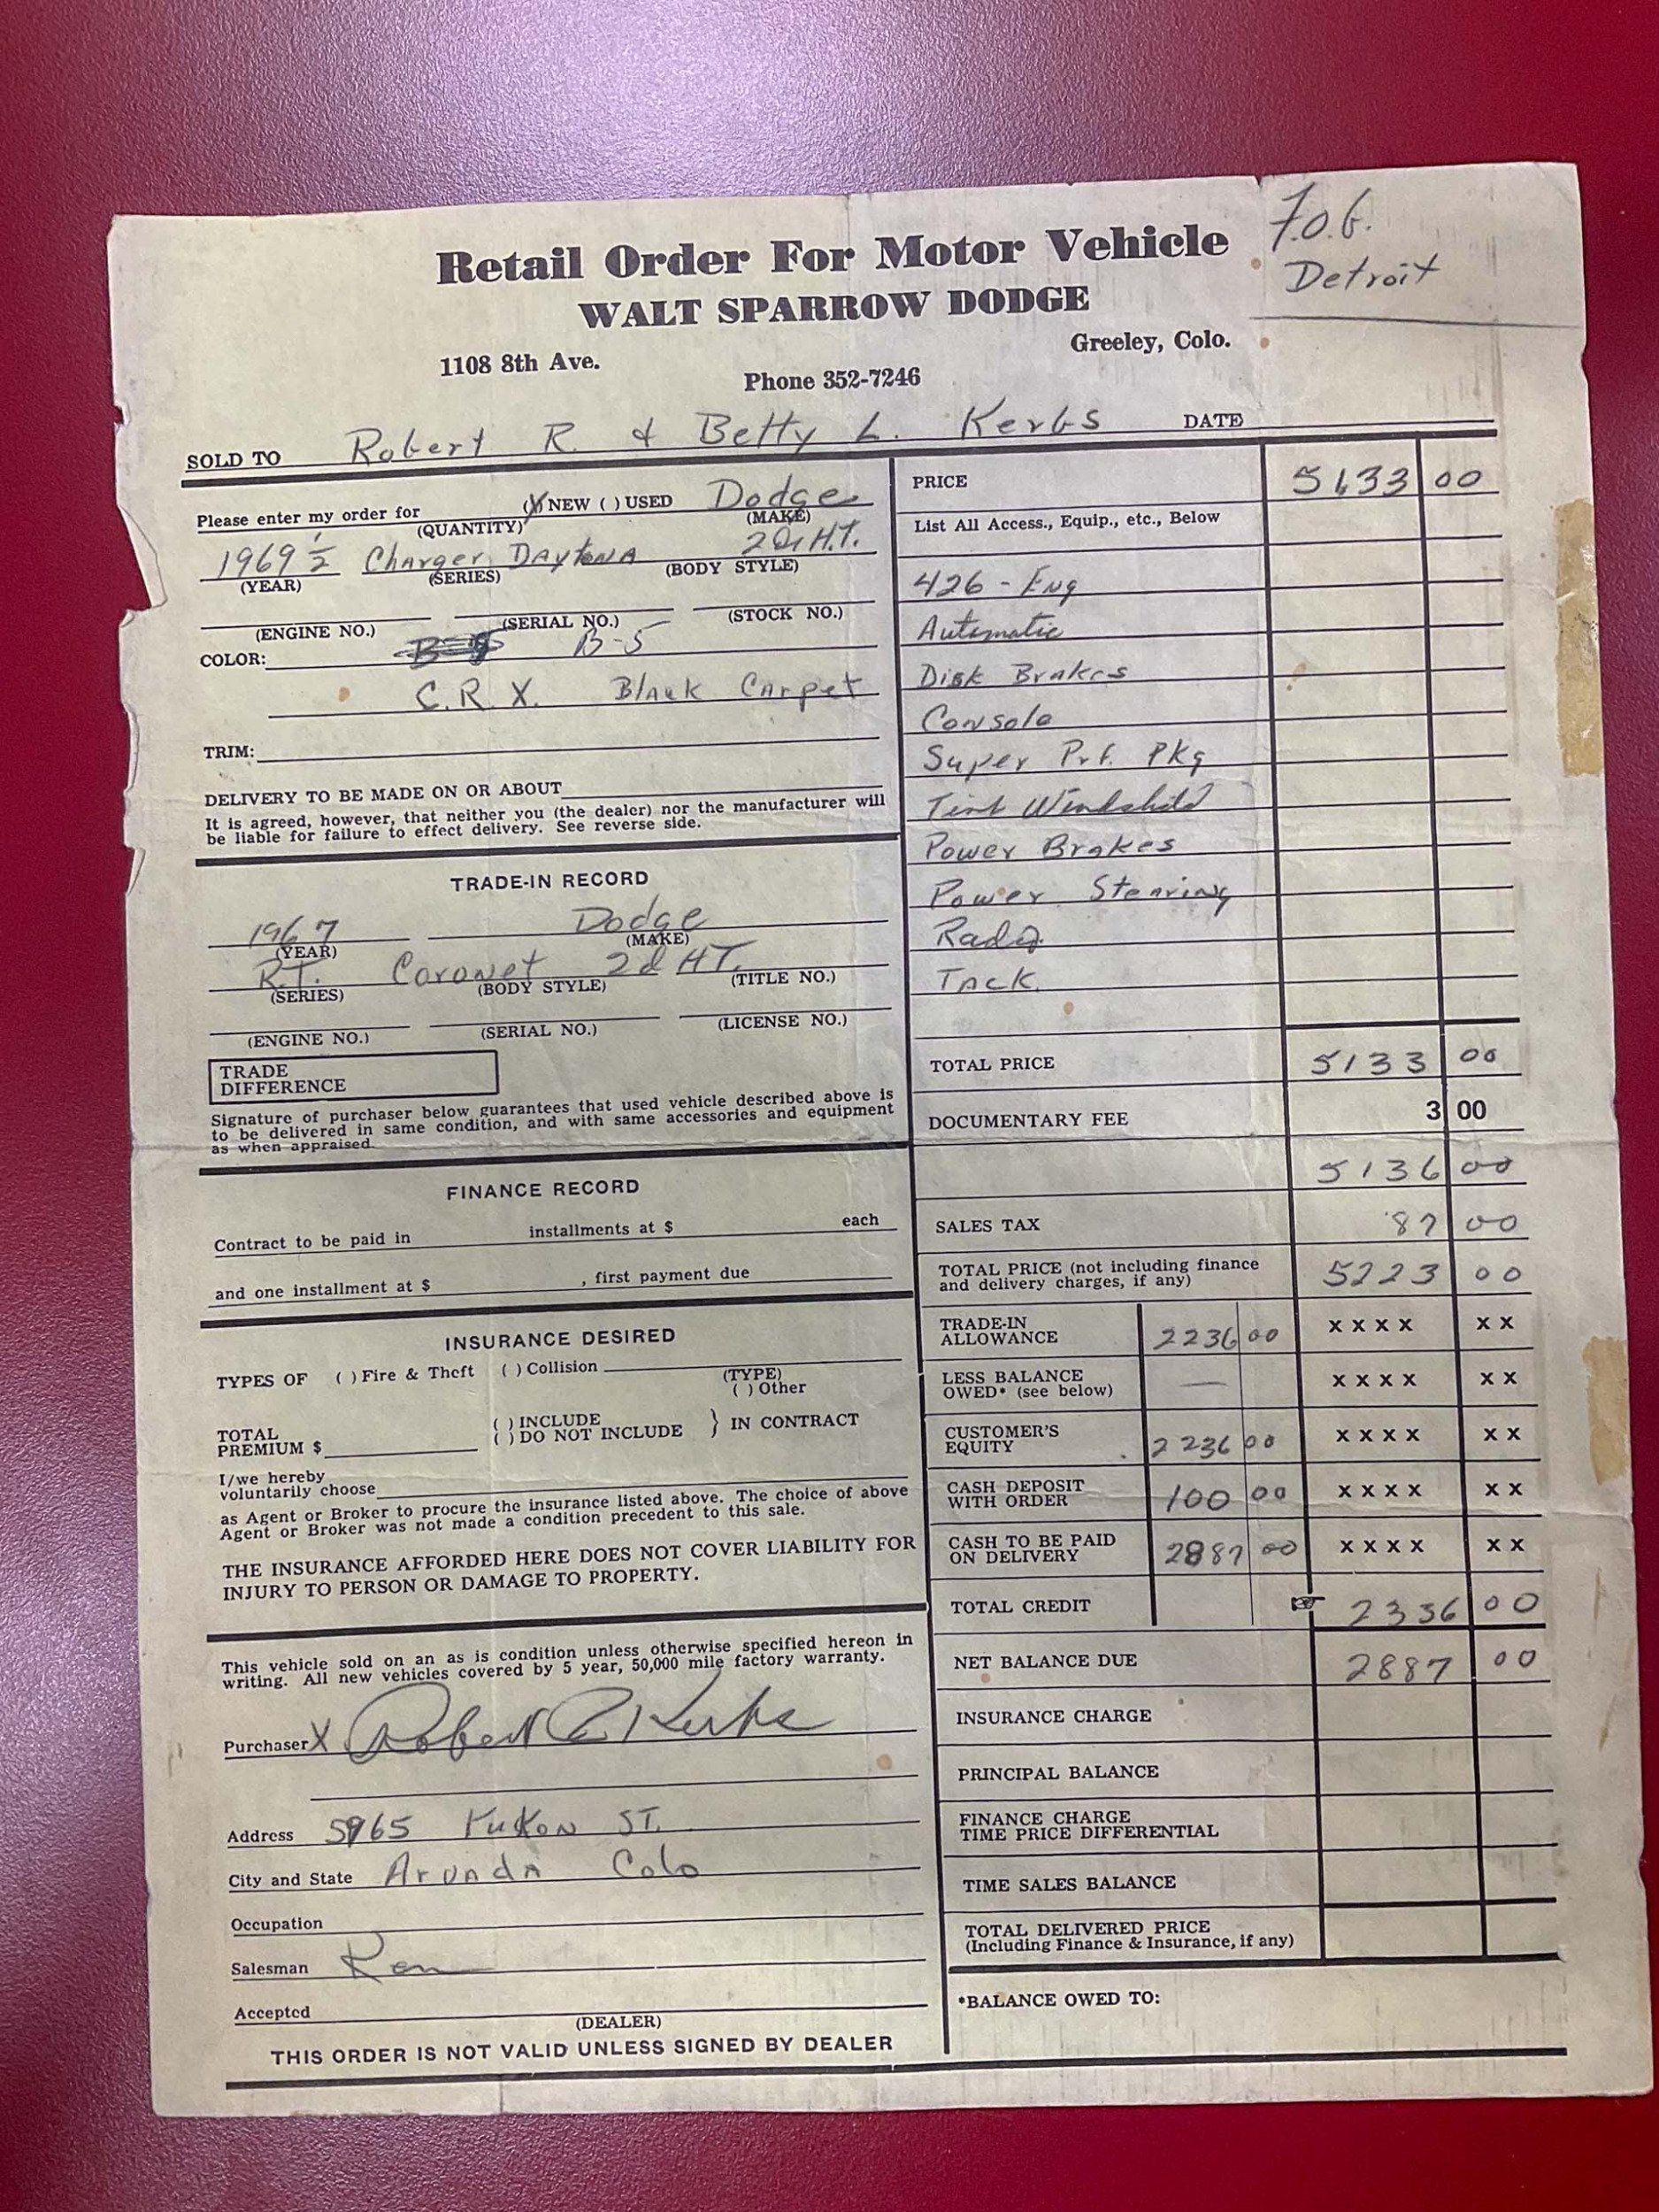 F.O.B.
Detroit
Retail Order For Motor Vehicle
WALT SPARROW DODGE
1108 8th Ave.
Greeley, Colo.
Phone 352-7246
SOLD TO Robert R. & Betty L. Kerbs DATE
Please enter my order for (X) NEW ( ) USED Dodge
(QUANTITY) (MAKE)
1969 1/2 Charger Daytona 2 Dr H.T.
(YEAR) (SERIES) (BODY STYLE)
(ENGINE NO.) (SERIAL NO.) (STOCK NO.)
COLOR: B-5
C.R.X. Black Carpet
TRIM:
DELIVERY TO BE MADE ON OR ABOUT
It is agreed, however, that neither you (the dealer) nor the manufacturer will
be liable for failure to effect delivery. See reverse side.
TRADE-IN RECORD
1967 Dodge
(YEAR) (MAKE)
R.T. Coronet 2d HT.
(SERIES) (BODY STYLE) (TITLE NO.)
(ENGINE NO.) (SERIAL NO.) (LICENSE NO.)
TRADE
DIFFERENCE
Signature of purchaser below guarantees that used vehicle described above is
to be delivered in same condition, and with same accessories and equipment
as when appraised.
FINANCE RECORD
Contract to be paid in installments at $ each
and one installment at $ , first payment due
INSURANCE DESIRED
TYPES OF ( ) Fire & Theft ( ) Collision
(TYPE)
( ) Other
TOTAL
PREMIUM $
( ) INCLUDE
( ) DO NOT INCLUDE } IN CONTRACT
I/we hereby
voluntarily choose
as Agent or Broker to procure the insurance listed above. The choice of above
Agent or Broker was not made a condition precedent to this sale.
THE INSURANCE AFFORDED HERE DOES NOT COVER LIABILITY FOR
INJURY TO PERSON OR DAMAGE TO PROPERTY.
This vehicle sold on an as is condition unless otherwise specified hereon in
writing. All new vehicles covered by 5 year, 50,000 mile factory warranty.
Purchaser X Robert R Kerbs
Address 5965 Yukon ST.
City and State Arvada Colo
Occupation
Salesman Ken
Accepted
(DEALER)
THIS ORDER IS NOT VALID UNLESS SIGNED BY DEALER
PRICE 5133 00
List All Access., Equip., etc., Below
426 - Eng
Automatic
Disk Brakes
Console
Super Prf. Pkg
Tint Windshild
Power Brakes
Power Stearing
Radio
Tack.
TOTAL PRICE 5133 00
DOCUMENTARY FEE 3 00
5136 00
SALES TAX 87 00
TOTAL PRICE (not including finance
and delivery charges, if any) 5223 00
TRADE-IN
ALLOWANCE 2236 00 XXXX XX
LESS BALANCE
OWED* (see below) — XXXX XX
CUSTOMER'S
EQUITY 2236 00 XXXX XX
CASH DEPOSIT
WITH ORDER 100 00 XXXX XX
CASH TO BE PAID
ON DELIVERY 2887 00 XXXX XX
TOTAL CREDIT 2336 00
NET BALANCE DUE 2887 00
INSURANCE CHARGE
PRINCIPAL BALANCE
FINANCE CHARGE
TIME PRICE DIFFERENTIAL
TIME SALES BALANCE
TOTAL DELIVERED PRICE
(Including Finance & Insurance, if any)
*BALANCE OWED TO: